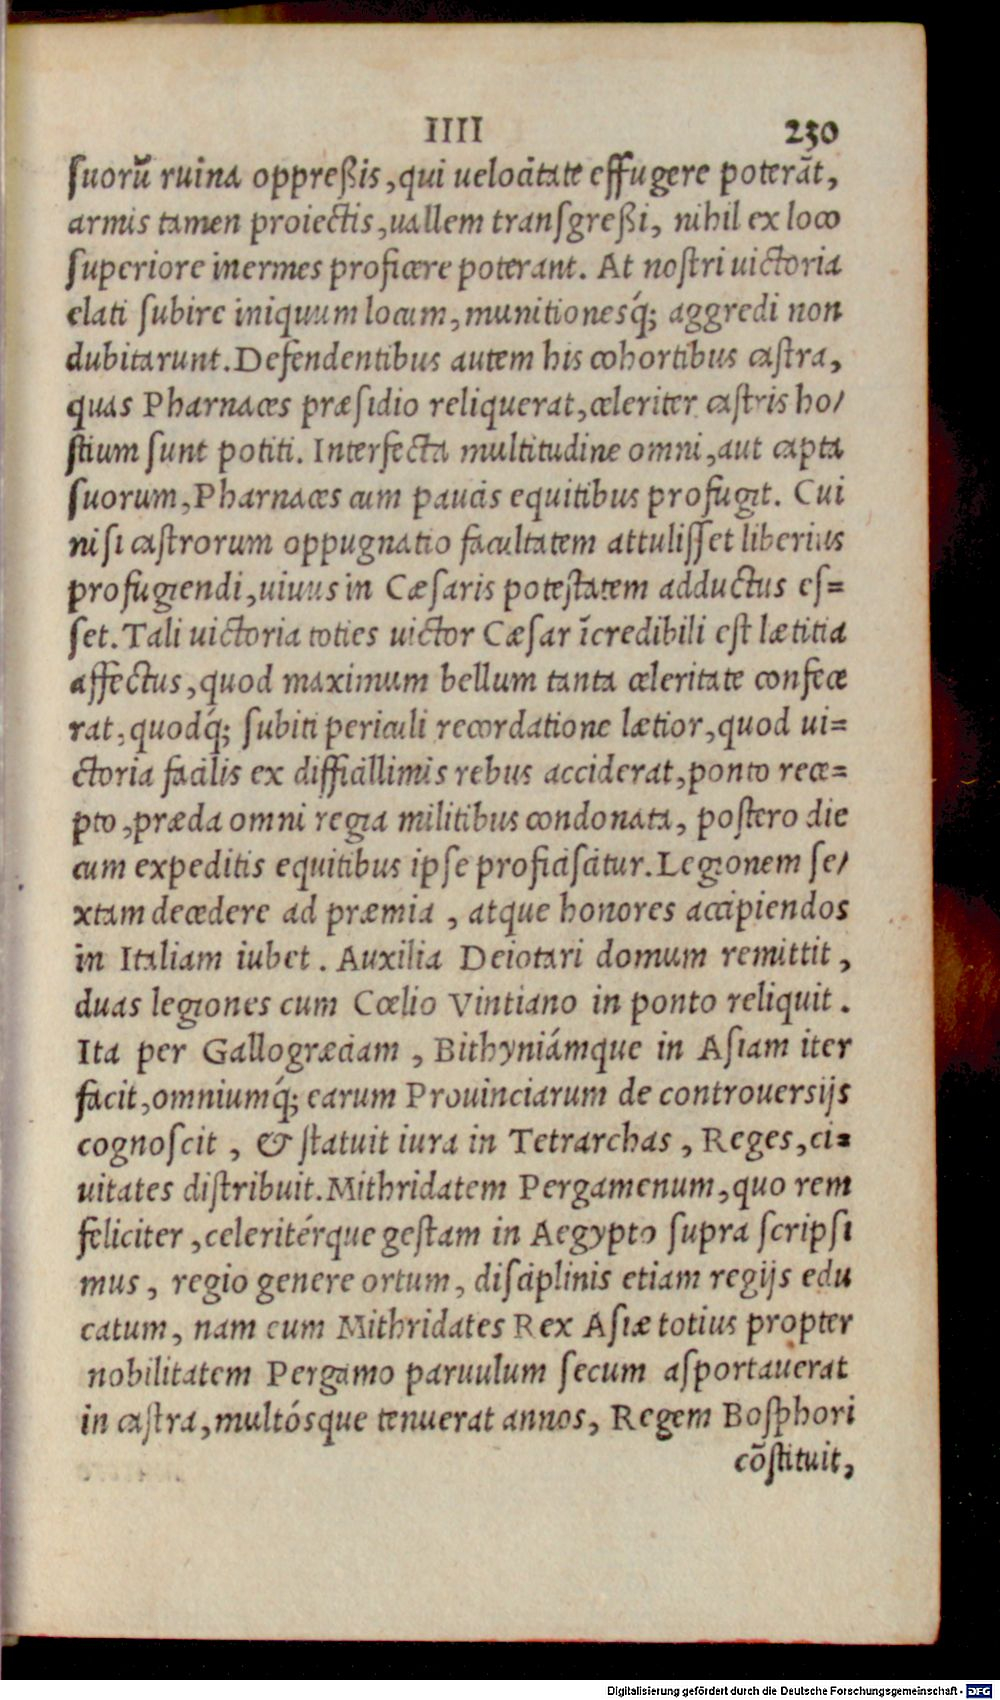 IIII 230
ſuorū ruina oppreßis, qui uelocitate effugere poterāt,
armis tamen proiectis, uallem tranſgreßi, nihil ex loco
ſuperiore inermes proficere poterant. At noſtri uictoria
elati ſubire iniquum locum, munitionesq́; aggredi non
dubitarunt. Defendentibus autem his cohortibus caſtra,
quas Pharnaces præſidio reliquerat, celeriter caſtris ho/
ſtium ſunt potiti. Interfecta multitudine omni, aut capta
ſuorum, Pharnaces cum paucis equitibus profugit. Cui
niſi caſtrorum oppugnatio facultatem attuliſſet liberius
profugiendi, uiuus in Cæſaris poteſtatem adductus eſ=
ſet. Tali uictoria toties uictor Cæſar īcredibili eſt lætitia
affectus, quod maximum bellum tanta celeritate confece
rat, quodq́; ſubiti periculi recordatione lætior, quod ui=
ctoria facilis ex difficillimis rebus acciderat, ponto rece=
pto, præda omni regia militibus condonata, poſtero die
cum expeditis equitibus ipſe proficiſcitur. Legionem ſe/
xtam decedere ad præmia, atque honores accipiendos
in Italiam iubet. Auxilia Deiotari domum remittit,
duas legiones cum Cœlio Vintiano in ponto reliquit.
Ita per Gallogræciam, Bithyniámque in Aſiam iter
facit, omniumq́; earum Prouinciarum de controuerſijs
cognoſcit, & ſtatuit iura in Tetrarchas, Reges, ci=
uitates diſtribuit. Mithridatem Pergamenum, quo rem
feliciter, celeritérque geſtam in Aegypto ſupra ſcripſi
mus, regio genere ortum, diſciplinis etiam regijs edu
catum, nam cum Mithridates Rex Aſiæ totius propter
nobilitatem Pergamo paruulum ſecum aſportauerat
in caſtra, multósque tenuerat annos, Regem Boſphori
cōſtituit,
Digitalisierung gefördert durch die Deutsche Forschungsgemeinschaft - DFG